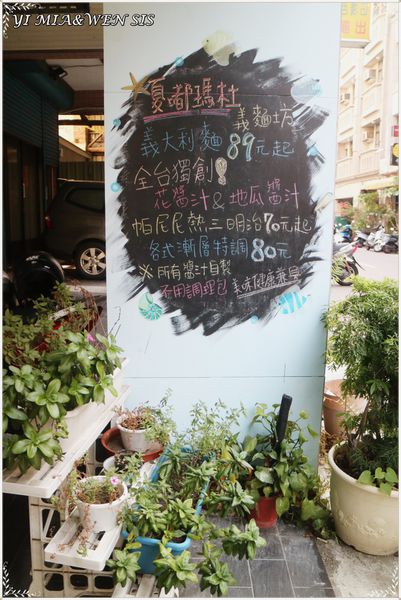 YI MIA&WEN SIS
夏嘟瑪杜
義麵坊
義大利麵89元起
全台獨創!
花醬汁&地瓜醬汁
帕尼尼熱三明治70元起
各式漸層特調80元
※所有醬汁自製
不用調理包 美味健康兼具